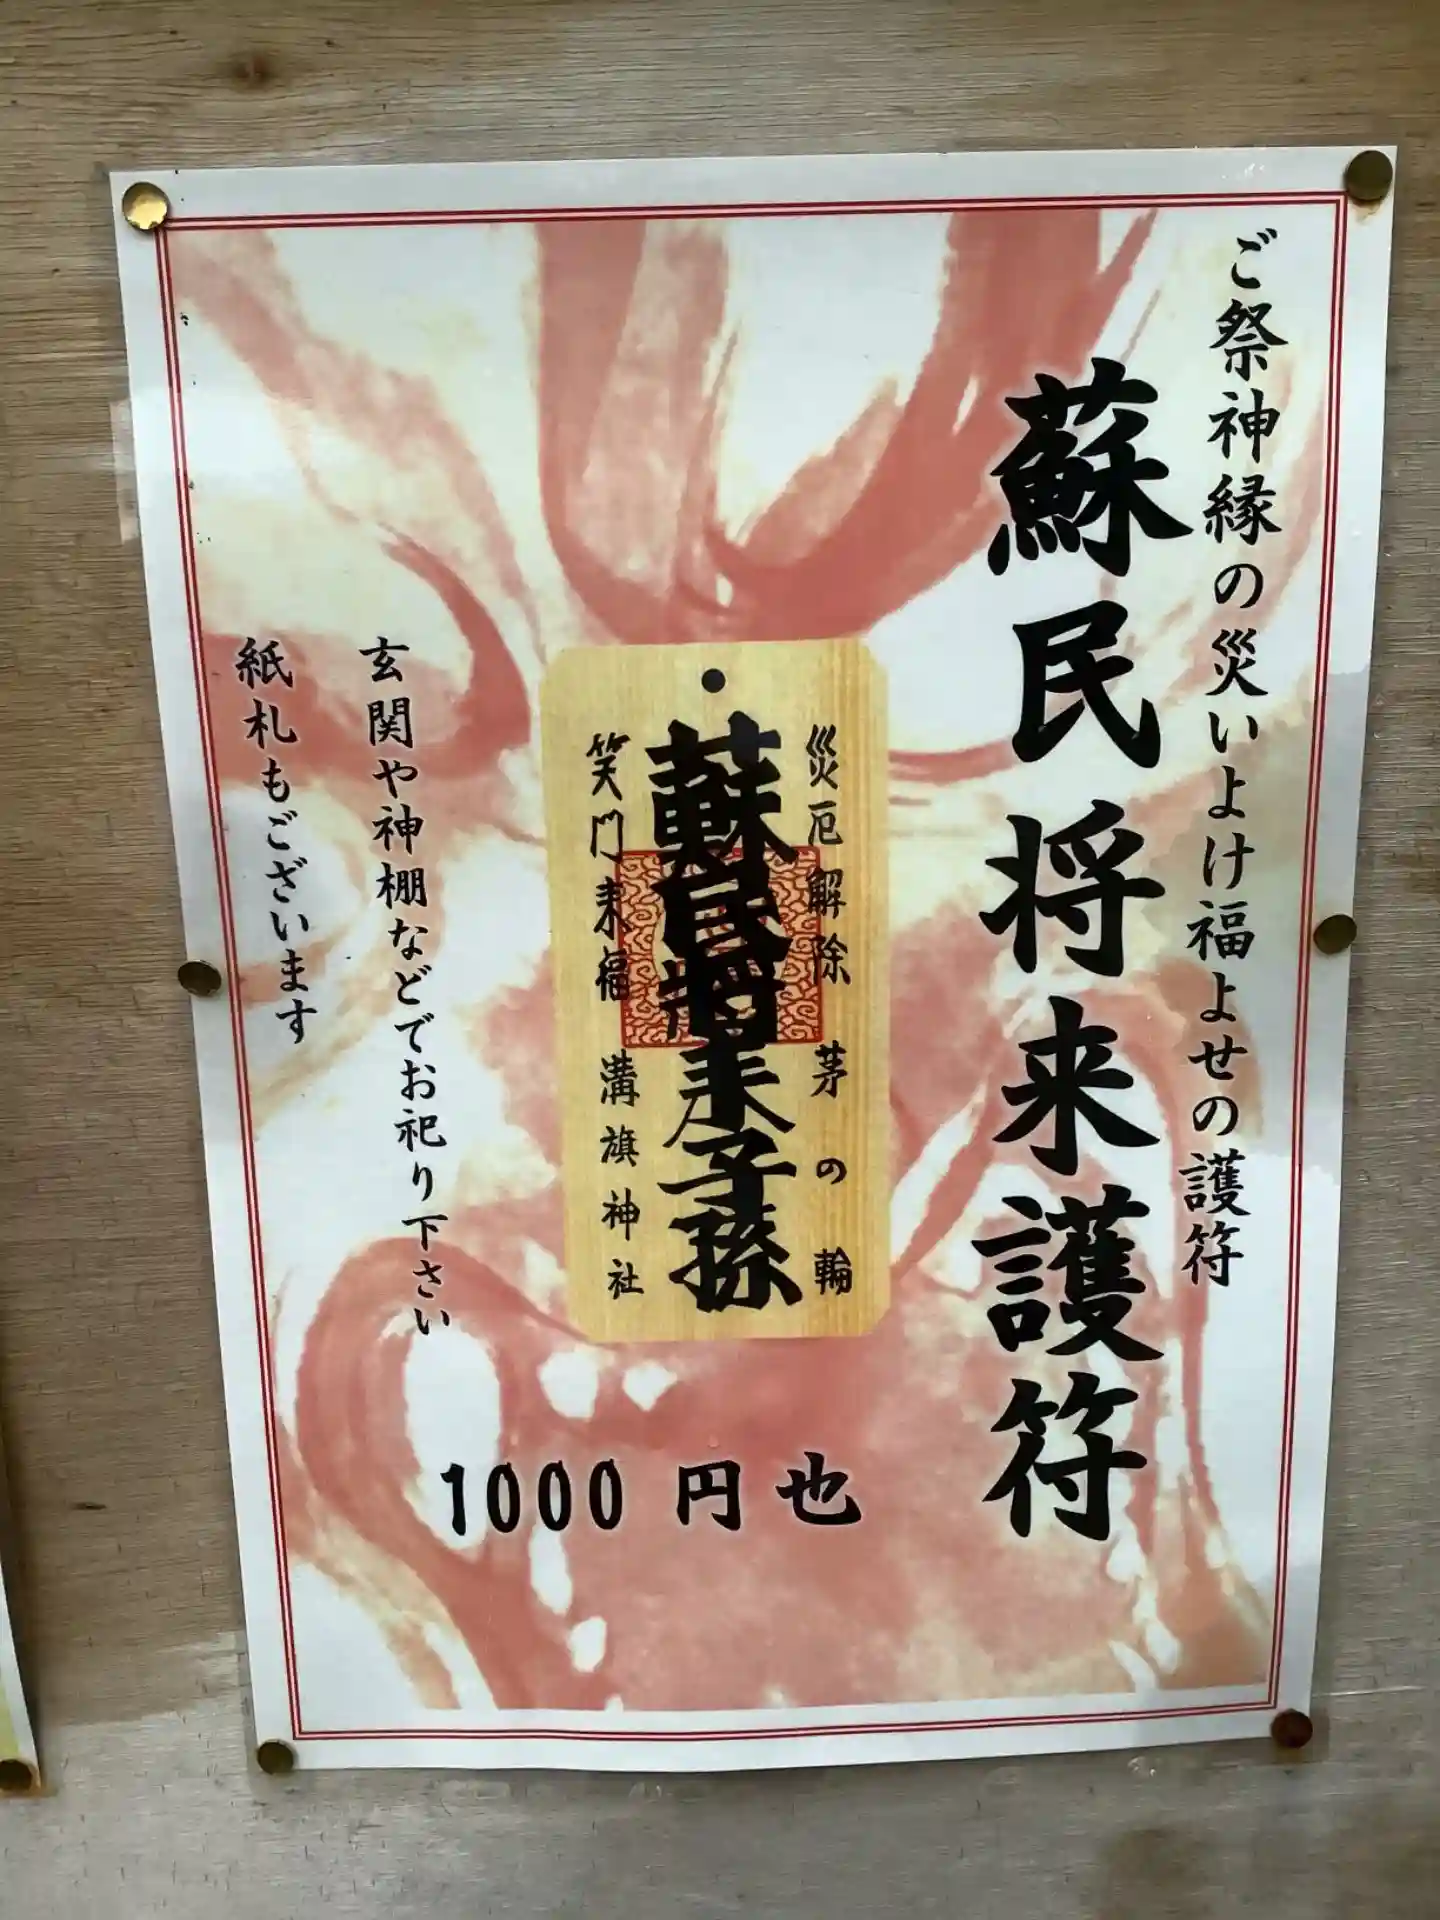 ご祭神縁の災いよけ福よせの護符
蘇民将来護符
災厄解除 茅の輪
蘇民将来子孫
笑門来福 溝旗神社
玄関や神棚などでお祀り下さい
紙札もございます
1000 円也